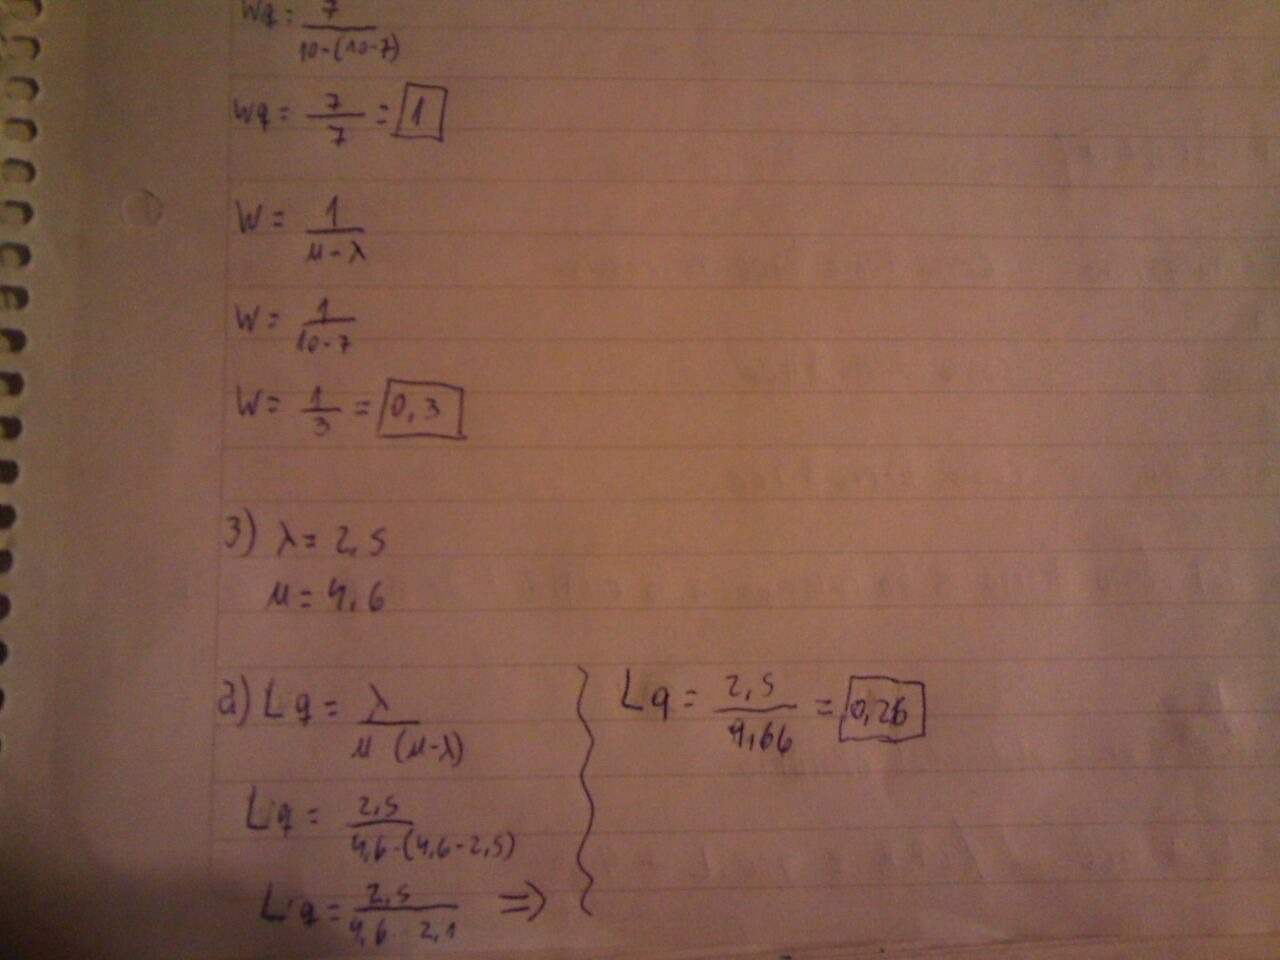 Wq = 7 / 10-(10-7)
Wq = 7 / 7 = 1
W = 1 / μ-λ
W = 1 / 10-7
W = 1 / 3 = 0,3
3) λ = 2,5
μ = 4,6
a) Lq = λ / μ (μ-λ)
Lq = 2,5 / 4,6-(4,6-2,5)
Lq = 2,5 / 4,6 - 2,1 =>
Lq = 2,5 / 9,66 = 0,26